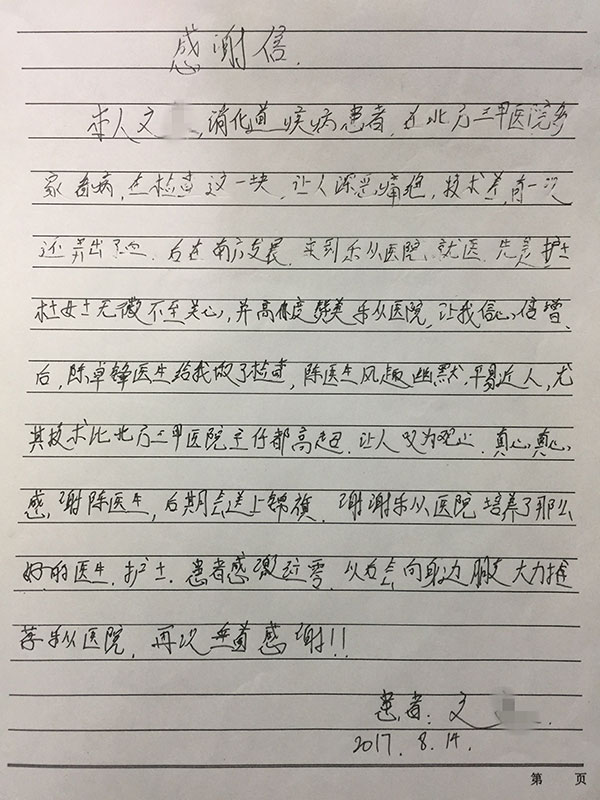 感谢信.
本人文 ,消化道疾病患者,在北方三甲医院多
家看病,在检查这一块,让人深受痛绝,技术差,有一次
还弄出了血.后在南方发展,来到乐从医院、就医.先是护士
杜女士无微不至关心,并高度赞美乐从医院,让我信心倍增、
后,陈卓锋医生给我做了检查,陈医生风趣幽默,平易近人,尤
其技术比北方三甲医院主任都高超.让人叹为观止.真心真心
感谢陈医生,后期会送上锦旗.谢谢乐从医院培养了那么
好的医生.护士.患者感激涕零.以后会向身边朋友大力推
荐乐从医院,再次 感谢!!
患者:文 .
2017.8.14.
第 页